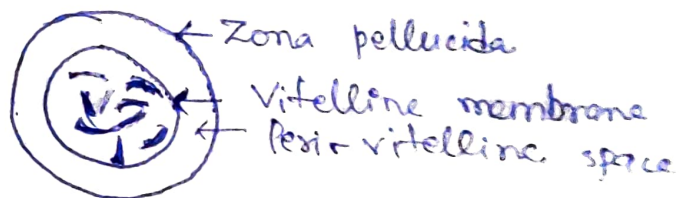 Zona pellucida
Vitelline membrane
Peri-vitelline space